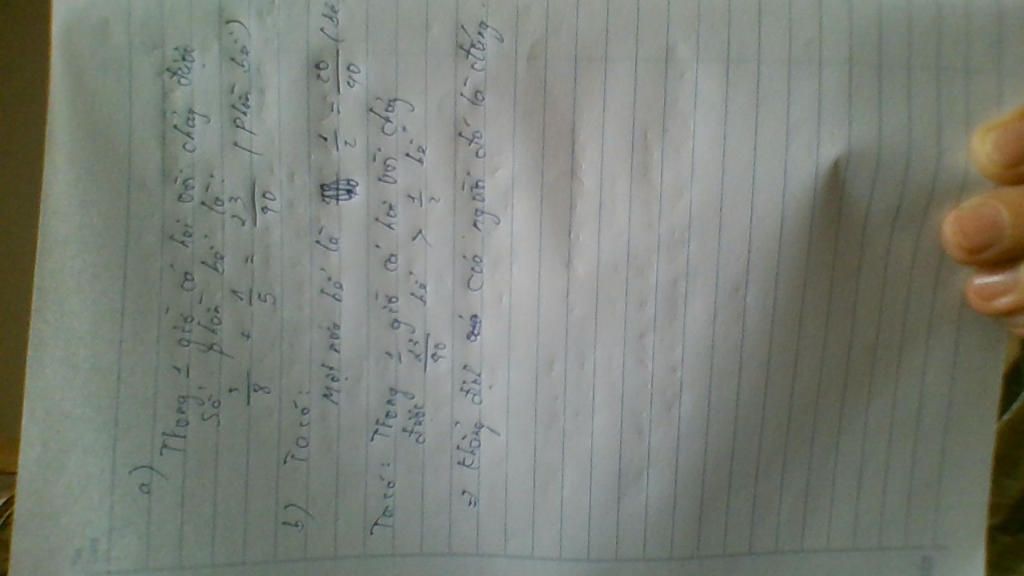 a)
Trong 1 giờ cả hai vòi chảy được
số phần bể là:
3/8 + 1/5 = 23/40 (phần bể)
b) Ta có:
Một nửa bể là 1/2 = 20/40 (bể
Ta có: Trong 1 giờ cả hai vòi chảy
được 23/40 bể > 1/2 bể
=> Khẳng định của ngân đó là đúng.